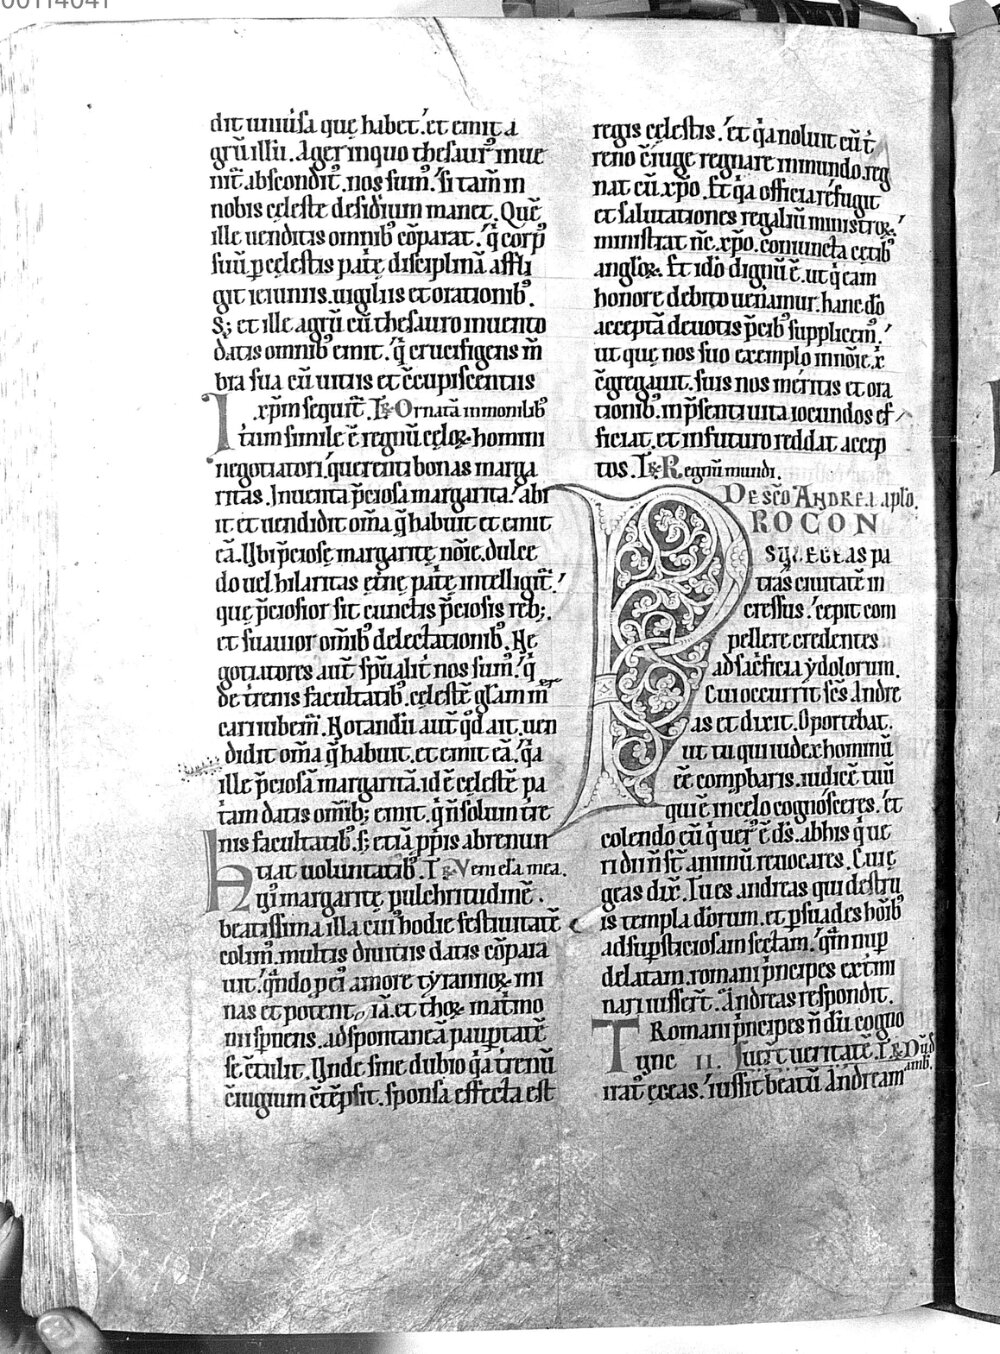 00114041
dit uniūsa quę habet.' et emit a
grū illū. Ager in quo thesaur᾽ inue
nit᷑ absconditᷤ. nos sum᾽.' si tam̄ in
nobis celeste desidium manet. Quē
ille uenditis omnib᾽ cōparat.' q̇ corp᾽
suū p celestis patrię disciplinā affli
git ieiuniis. uigiliis et orationib᾽.
S; et ille agrū cū thesauro inuento
datis omnib᾽ emit.' q̇ crucifigens m̄
bra sua cū uitiis et c̄cupiscentiis
xp̄m sequit᷑. R Ornatā in monilib᾽
Itum simile ē regnū celoꝝ homini
negotiatori.' querenti bonas marga
ritas. Inuenta p̄ciosa margarita.' abi
it et uendidit om̄a q̄ habuit et emit
eā. Ubi p̄ciose margaritę nōie. dulce
do uel hilaritas eternę patrię intelligit᷑.'
quę p̄ciosior sit cunctis p̄ciosis reb;.
et suauior om̄ib᾽ delectationib᾽. Ne
gotiatores aut̄ sp̄ualit̄ nos sum᾽.' q̇
de terrenis facultatib᾽ celestē glām m̄
cari iubem᾽. Notandū aut̄ qd̄ ait. uen
didit om̄a q̄ habuit. et emit eā.' q̇a
ille p̄ciosā margaritā. id ē celestē pa
triam datis om̄ib; emit.' q̇ n̄ solum terre
nis facultatib᾽. s; etiā ppiis abrenun
tiat uoluntatib᾽. R Veni electa mea.
Hui᾽ margaritę pulchritudinē.
beatissima illa cui᾽ hodie festiuitatē
colim᾽. multis diuitiis datis cōpara
uit.' q̇ndo p d̄i amore tyrannoꝝ mi
nas et potent iā. et thoꝝ mat᷑mo
nii sp̄nens. ad spontaneā paup̄tatē
se c̄tulit. Unde sine dubio q̇a terrenū
c̄iugium c̄tēpsit. sponsa effecta est
regis celestis.' Et q̇a noluit cū t̄
reno c̄iuge regnare in mundo. reg
nat cū xp̄o. Et q̇a officia refugit
et salutationes regaliū ministroꝝ.'
ministrat n̄c xp̄o. coniuncta cetib᾽
angl̄oꝝ. Et idō dignū ē. ut q̇ eam
honore debito ueriamur. hanc dō
acceptā deuotis p̄cib᾽ supplicem᾽.'
ut quę nos suo exemplo in nōie x̄
c̄gregauit. suis nos meritis et ora
tionib᾽. in p̄senti uita iocundos ef
ficiat. et in futuro reddat accep
tos. R Regnū mundi.
DE SCŌ ANDREA aplo.
PROCON
SUL EGEAS pa
tras ciuitatē in
gressus.' cepit com
pellere credentes
ad sacrificia ydolorum.
Cui occurrit sc̄s Andre
as et dixit. Oportebat.
ut tu qui iudex hominū
eē comprobaris. iudicē tuū
qui ē in celo cognosceres. et
colendo eū q̇ uer᾽ ē d̄s. ab his q̇ ue
ri dii n̄ st̄. animū reuocares. Cui ę
geas dix̄. Tu es andreas qui destru
is templa deorum. et p̄suades hoīb᾽
ad sup̄sticiosam sectam.' q̇m nup̄
delatam. romani p̄ncipes extimi
nari iussert̄. Andreas respondit.
Romani p̄ncipes n̄ dū cogno
Tunc II. suer̄t ueritatē. R Dūs
iratus egeas.' iussit beatū Andream amb.